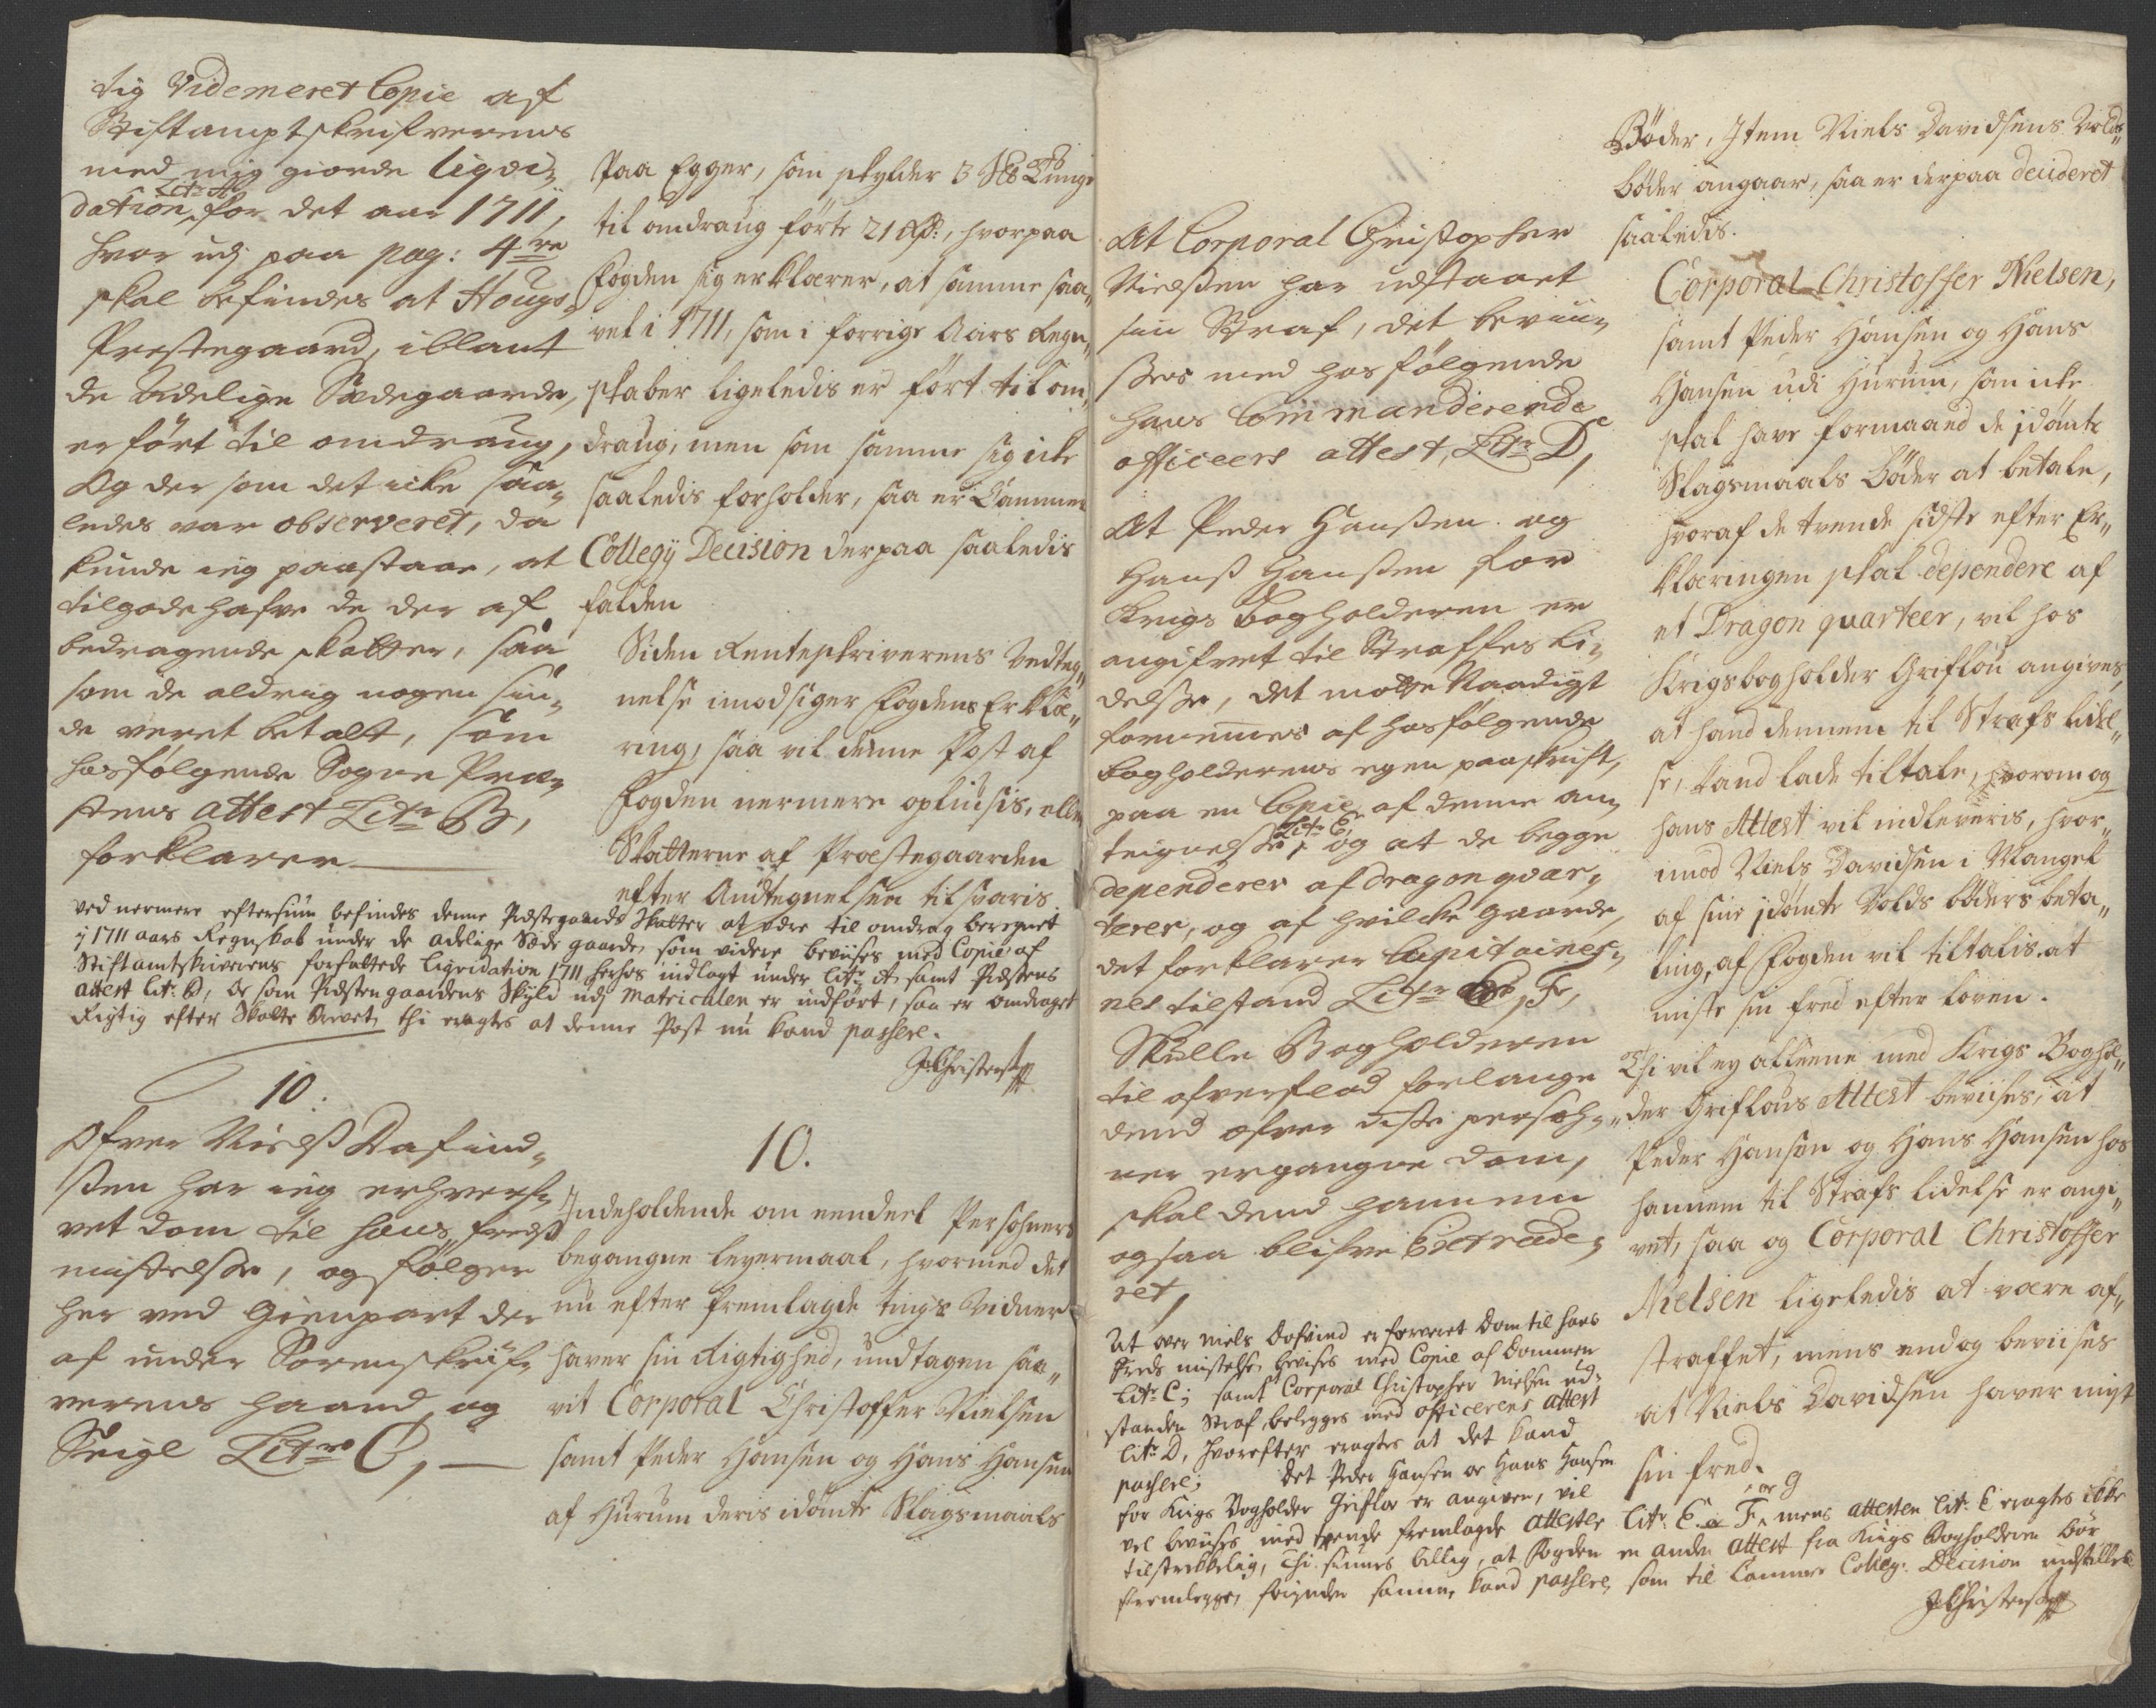 tig Videmeret Copie af
Stiftamptskrifverens
med mig giorde liqvi„
dation, Litr A for det aar 1711,
hvor udj paa pag: 4re
skal befindes at Hougs
Prestegaard, iblant
de Adelige Sædegaarde,
er ført til omdraug,
Og der som det icke saa„
ledes var observeret, da
kunde ieg paastaae, at
tilgode hafve de der af
bedragende skatter, saa
som de aldrig nogen sin„
de veret betalt, som
hosfølgende Sogne Præ„
stens attest Litr B,
forklarer
ved nermere eftersiun befindes denne Præstegaards Skatter at være til omdrag beregnet
y 1711 aars Regnskab under de adelige Sæde gaarde, som videre beviises med Copie af
Stiftamtskriverens forfattede liqvidation 1711 herhos indlagt under litr A samt Præstens
attest lit: B, Og som Præstengaardens Skyld udj Matriculen er indført, saa er omdraget
Rigtig efter Skatte Brevet, thi eragtes at denne Post nu kand passere.
JChristensen
10.
Ofver Nielß Dafind„
sen har ieg erhverf„
vet dom til hans freds
mistelse, og følger
her ved Gienpart der
af under Sorenskrif„
verens haand og
Seigl Litra C,
Paa Egger, som skylder 3 Skb Tunge
til omdraug førte 21 Rdr:, hvorpaa
Fogden sig erklærer, at samme saa„
vel i 1711, som i forrige Aars Regn„
skaber ligeledis er ført til om„
draug, men som samme sig icke
saaledis forholder, saa er Cammer
Collegij Decision derpaa saaledis
falden
Siden Renteskriverens Vedteg„
nelse imodsiger Fogdens Erklæ„
ring, saa vil denne Post af
Fogden nermere opliusis, eller
Skatterne af Præstegaarden
efter Andtegnelsen tilsvaris
10.
Indeholdende om eendeel Persohners
begangne leyermaal, hvormed det
nu efter fremlagde tings Vidner
haver sin Rigtighed, undtagen saa„
vit Corporal Christoffer Nielsen
samt Peder Hansen og Hans Hansen
af Hurum deris idømte Slagsmaals
At Corporal Christopher
Nielsen har udstaaet
sin Straf, det bevii„
ses med hosfølgende
hans Commanderende
officeers attest, Litr D,
At Peder Hansen og
Hanß Hansen for
Krigs bogholderen er
angifvet til Straffes li„
delse, det motte Naadigst
fornemmes af hosfølgende
bogholderens egen paaskrift,
paa en Copie af denne an„
teignelse, Litr E, og at de begge
dependerer af dragon qvar„
terer, og af hvilcke gaarde,
det forklarer Capitainer„
nes tilstand Litr F,
Skulle Bogholderen
til ofverflod forlange
dend ofver disse persoh„
ner ergangne dom,
skal dend hannem
ogsaa blifve Extrade„
ret,
At over Niels Dafvind er forveret Dom til hans
Freds mistelse, bevises med Copie af Dommen
litr C; samt Corporal Christopher Nielsen ud„
standen Straf, belegges med officerens attest
litr D, hvorefter eragtes at det kand
passere; Det Peder Hansen oc Hans Hansen
for Krigs Bogholder Griflov er angiven, vil
vel beviises med tvende fremlagde Attester litr: E. F, oc G mens attesten lit: E eragtes icke
tilstrekkelig, thi siunes billig, at Fogden en anden attest fra Krigs Bogholderen bør
fremlegge, førinden samme kand passere, som til Cammer Colleg: Decision indstilles
JChristensen
Bøder, Item Niels Davidsens Volds„
bøder angaar, saa er derpaa decideret
saaledis.
Corporal Christoffer Nielsen,
samt Peder Hansen og Hans
Hansen udi Hurum, som icke
skal have formaaed de idømte
Slagsmaals Bøder at betale,
hvoraf de tvende sidste efter Er„
klæringen skal dependere af
et Dragon quarteer, vil hos
Krigsbogholder Griflou angives,
at hand dennem til Strafs lidel„
se, kand lade tiltale, hvorom og
hans Attest vil indleveris, hvor„
imod Niels Davidsen i Mangel
af sine idømte Volds bøders beta„
ling, af Fogden vil tiltalis at
miste sin fred efter loven.
Thi vil ey alleene med Krigs Boghol„
der Griflous Attest beviises, at
Peder Hansen og Hans Hansen hos
hannem til Strafs lidelse er angi„
vet, saa og Corporal Christoffer
Nielsen ligeledis at være af„
straffet, mens end og beviises
at Niels Davidsen haver mist
sin fred.